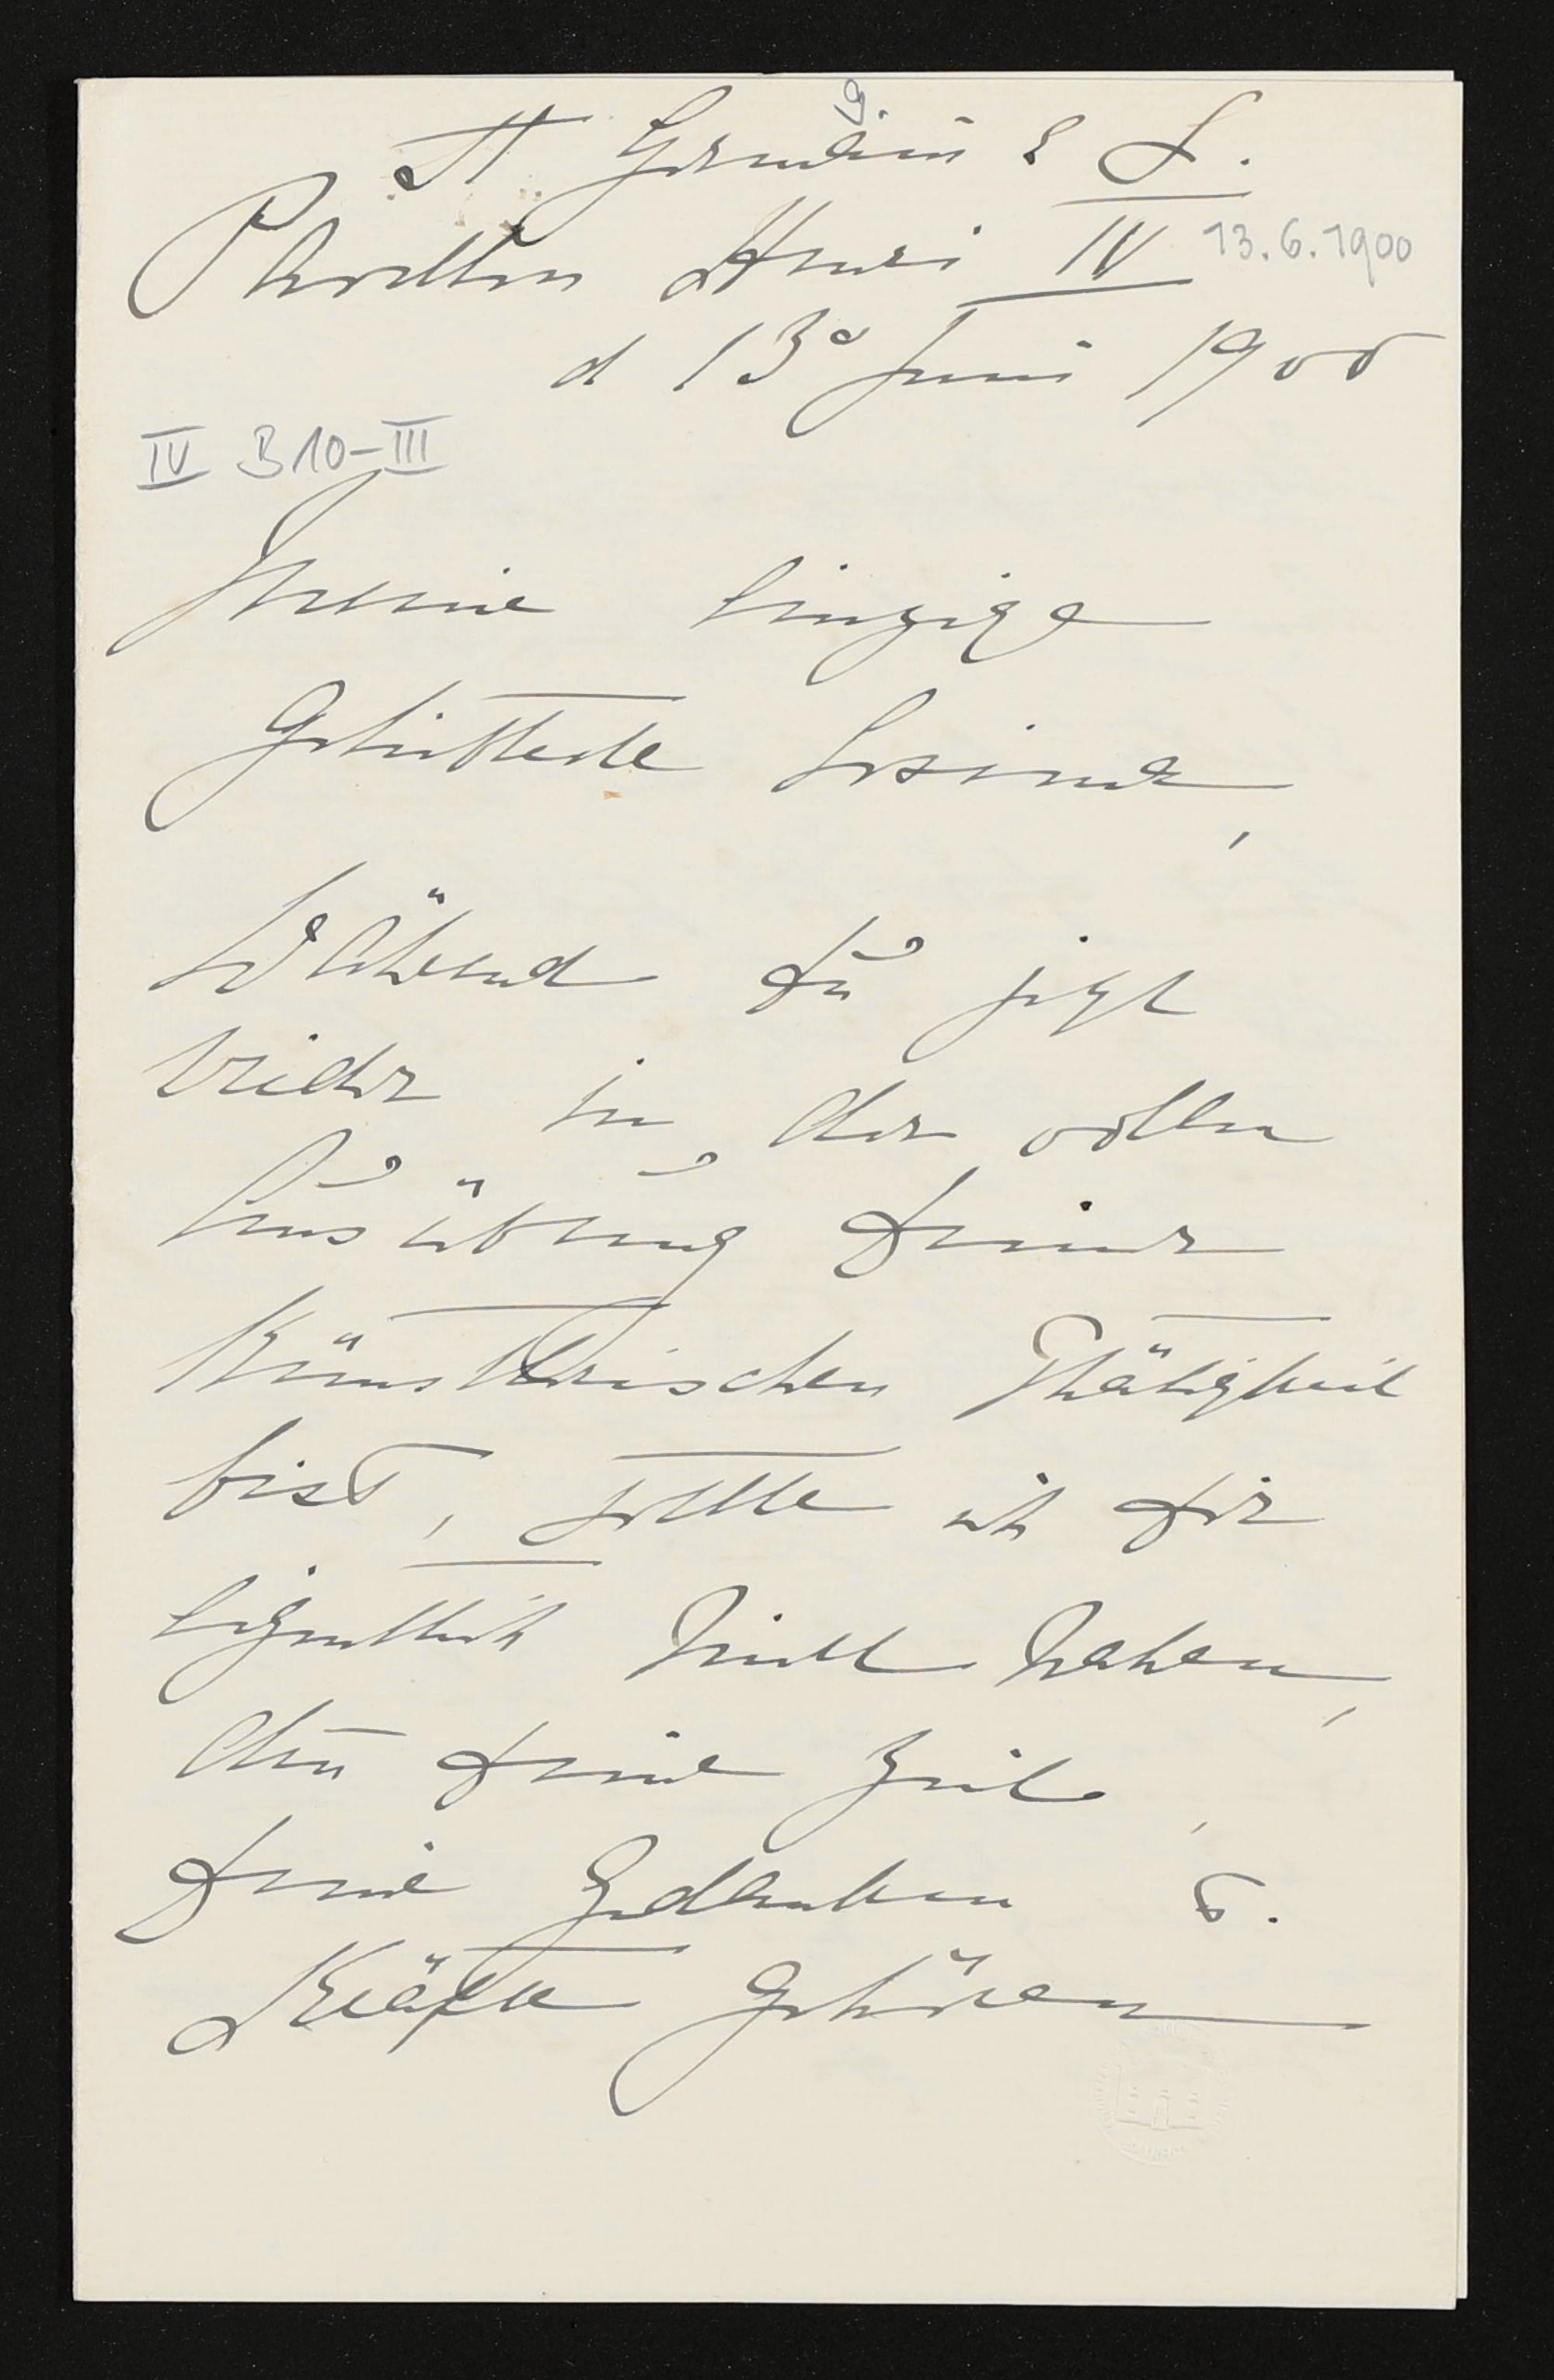 St Germain e L.
Pavillon Henri IV 13.6.1900
d 13º Juni 1900
IV B 10-III
Meine einzige
Geliebteste Cosima,
Während Du jetzt
wieder in der vollen
Ausübung Deiner
Künstlerischen Thätigkeit
bist, sollte ich Dir
eigentlich nicht nahen,
deñ Deine Zeit,
Deine Gedanken u.
Kräfte gehören